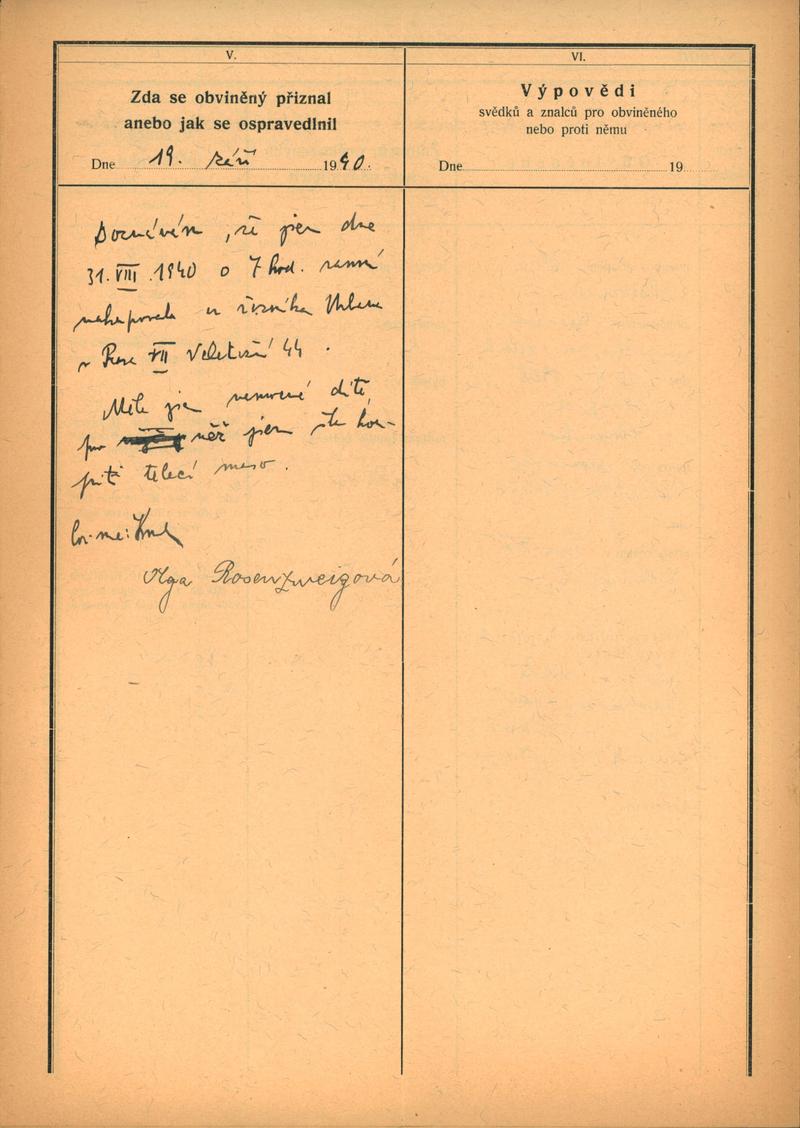 V.
Zda se obviněný přiznal
anebo jak se ospravedlnil
Dne 19. září 1940.
VI.
Výpovědi
svědků a znalců pro obviněného
nebo proti němu
Dne 19
Doznávám, že jsem dne
31. VIII. 1940 o 7 hod. ranní
nakupovala u řezníka
v Praze VII Veletržní 44.
Měla jsem nemocné dítě,
pro něž jsem šla kou-
piti telecí maso.
Olga Rosenzweigová